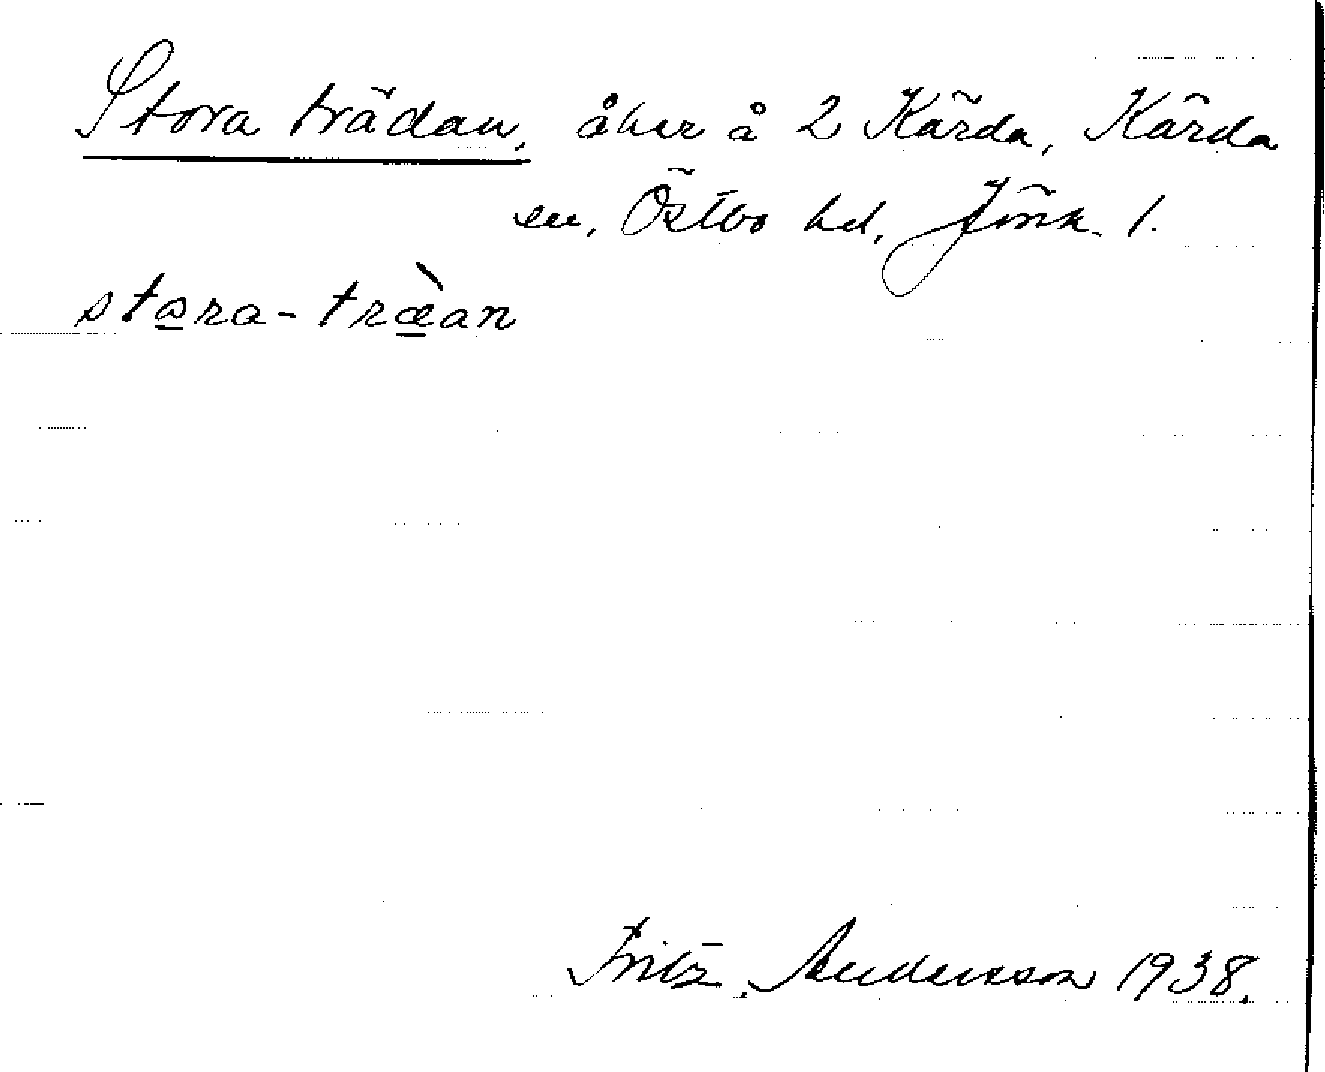 Stora trädan, åker å 2 Kärda, Kärda
sn, Östbo hd, Jönk. l.
stora-træ̀an
Fritz. Andersson 1938.